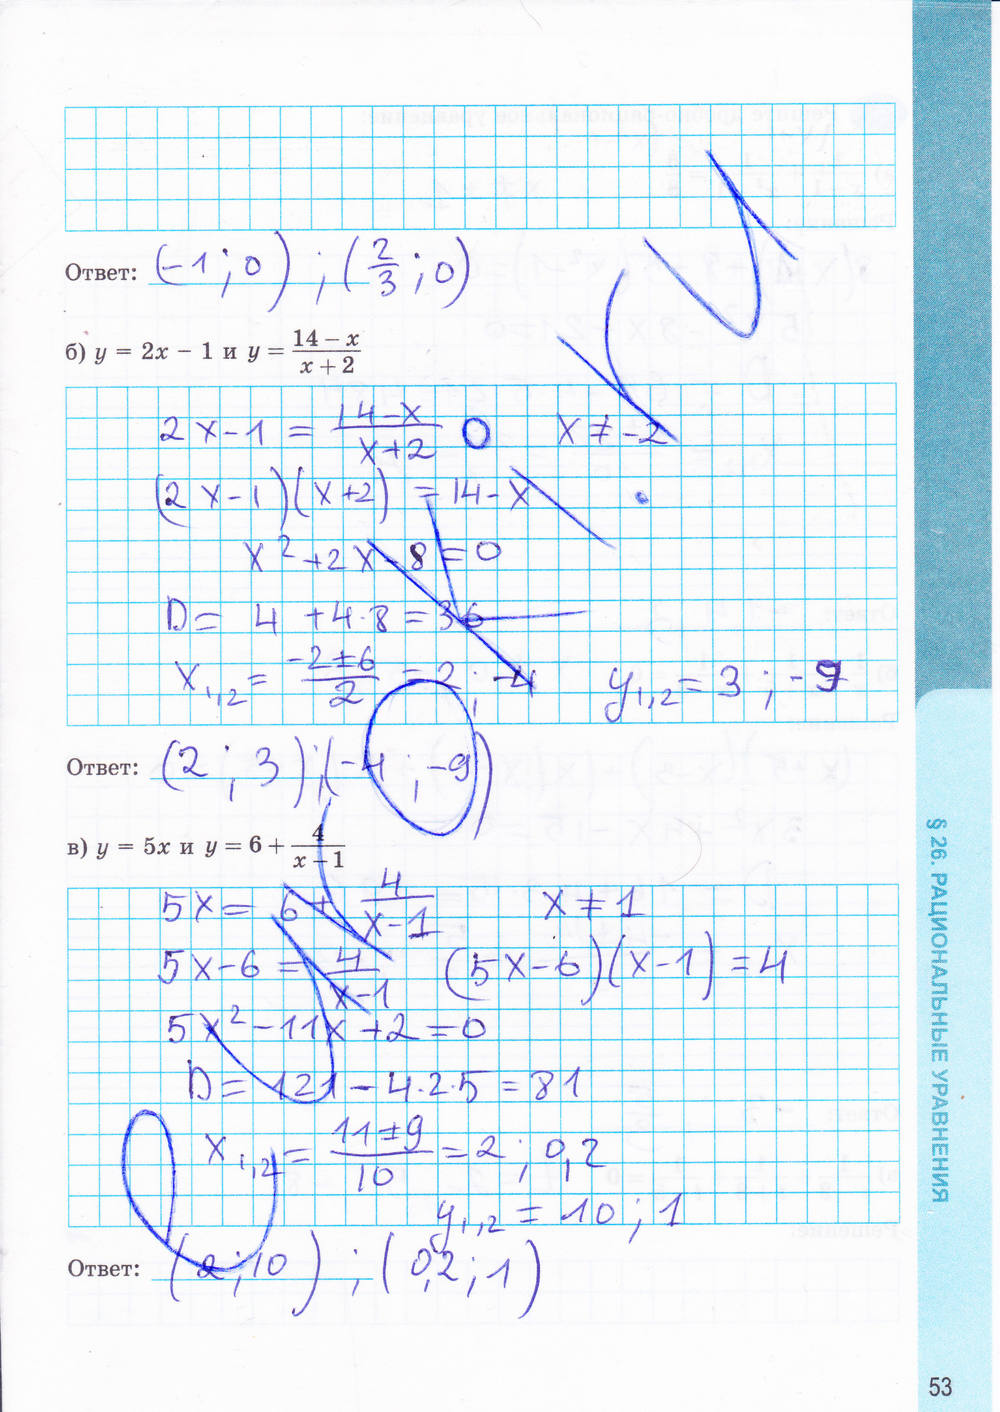 Ответ: (-1 ; 0) ; (2/3 ; 0)
б) y = 2x − 1 и y = (14 − x)/(x + 2)
2x-1 = (14-x)/(x+2) 0 x ≠ -2
(2x-1)(x+2) = 14-x
x² + 2x - 8 = 0
D = 4 + 4·8 = 36
x₁,₂ = (-2±6)/2 = 2 ; -4 y₁,₂ = 3 ; -9
Ответ: (2 ; 3) ; (-4 ; -9)
в) y = 5x и y = 6 + 4/(x − 1)
5x = 6 + 4/(x-1) x ≠ 1
5x-6 = 4/(x-1) (5x-6)(x-1) = 4
5x² - 11x + 2 = 0
D = 121 - 4·2·5 = 81
x₁,₂ = (11±9)/10 = 2 ; 0,2
y₁,₂ = 10 ; 1
Ответ: (2 ; 10) ; (0,2 ; 1)
§ 26. РАЦИОНАЛЬНЫЕ УРАВНЕНИЯ
53